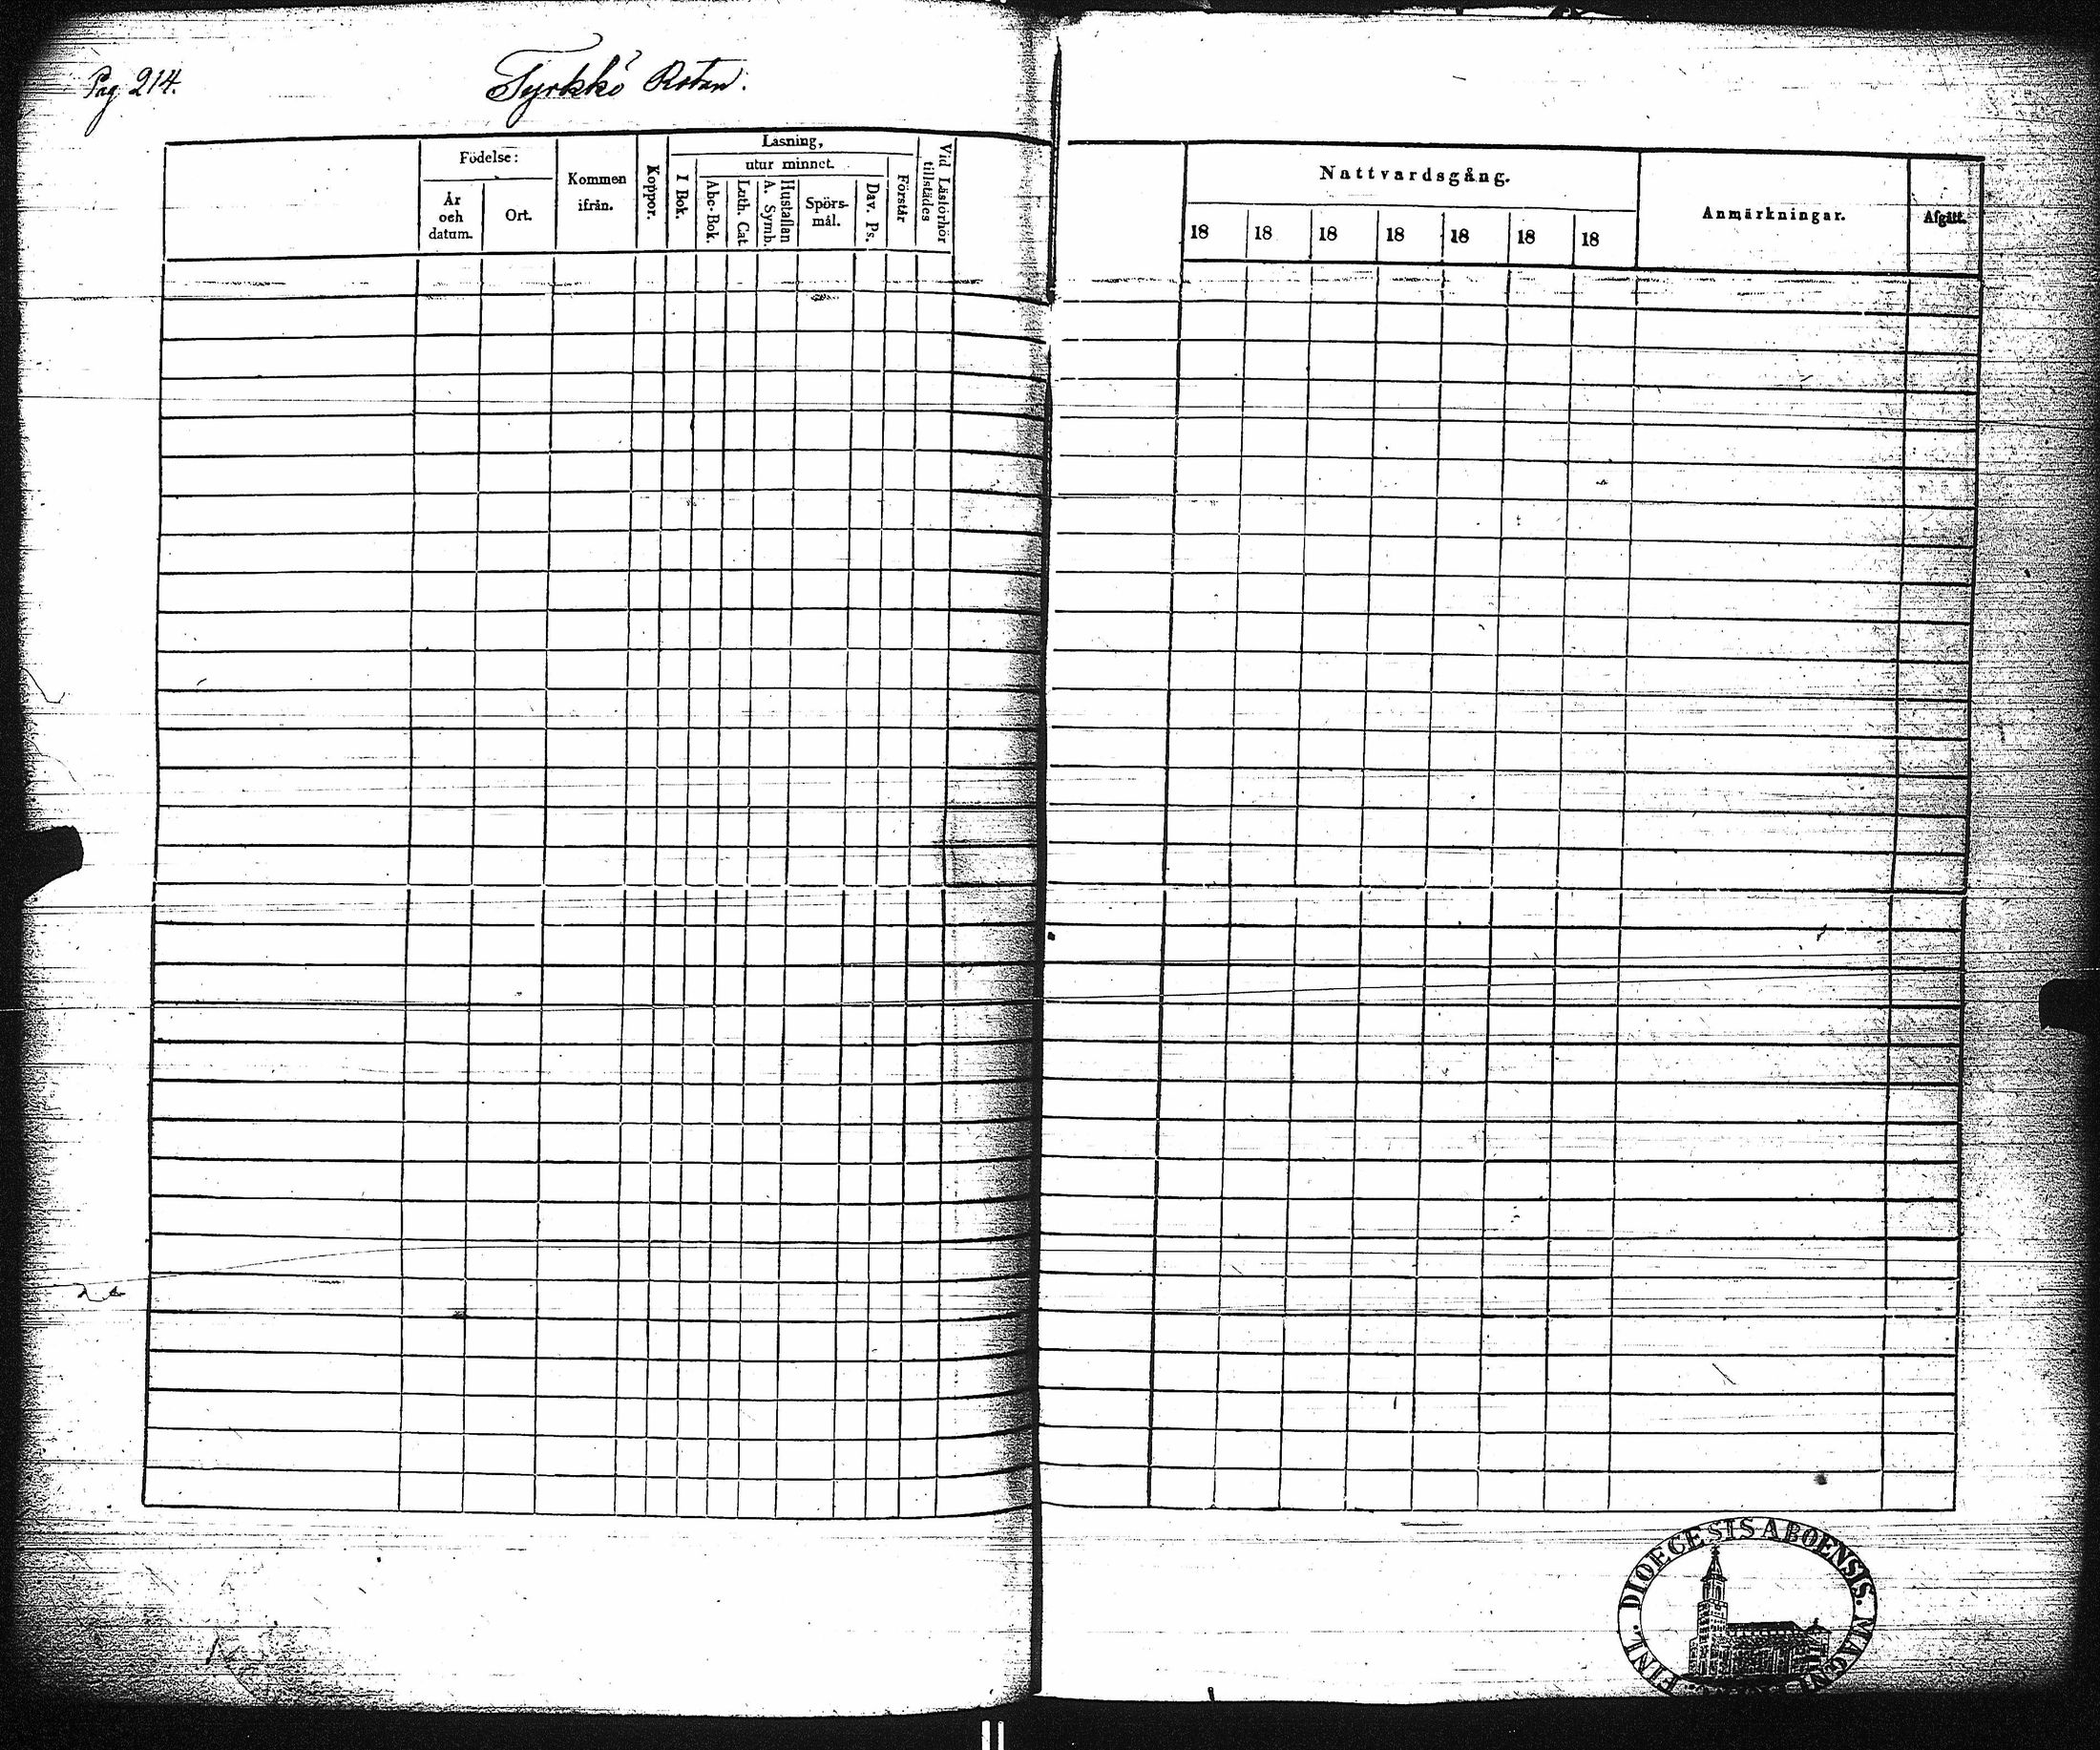 Pag 214.
Tyrkkö Rotan.
Födelse:
År och datum.
Ort.
Kommen ifrån.
Koppor.
Läsning,
I Bok.
utur minnet.
Abc-Bok.
Luth. Cat
A. Symb.
Hustaflan
Spörs-mål.
Dav. Ps.
Förstår
Vid Läsförhör tillstädes
Nattvardsgång.
18 18 18 18 18 18 18
Anmärkningar.
Afgått.
FINL. DIOECESIS ABOENSIS. MAGNI